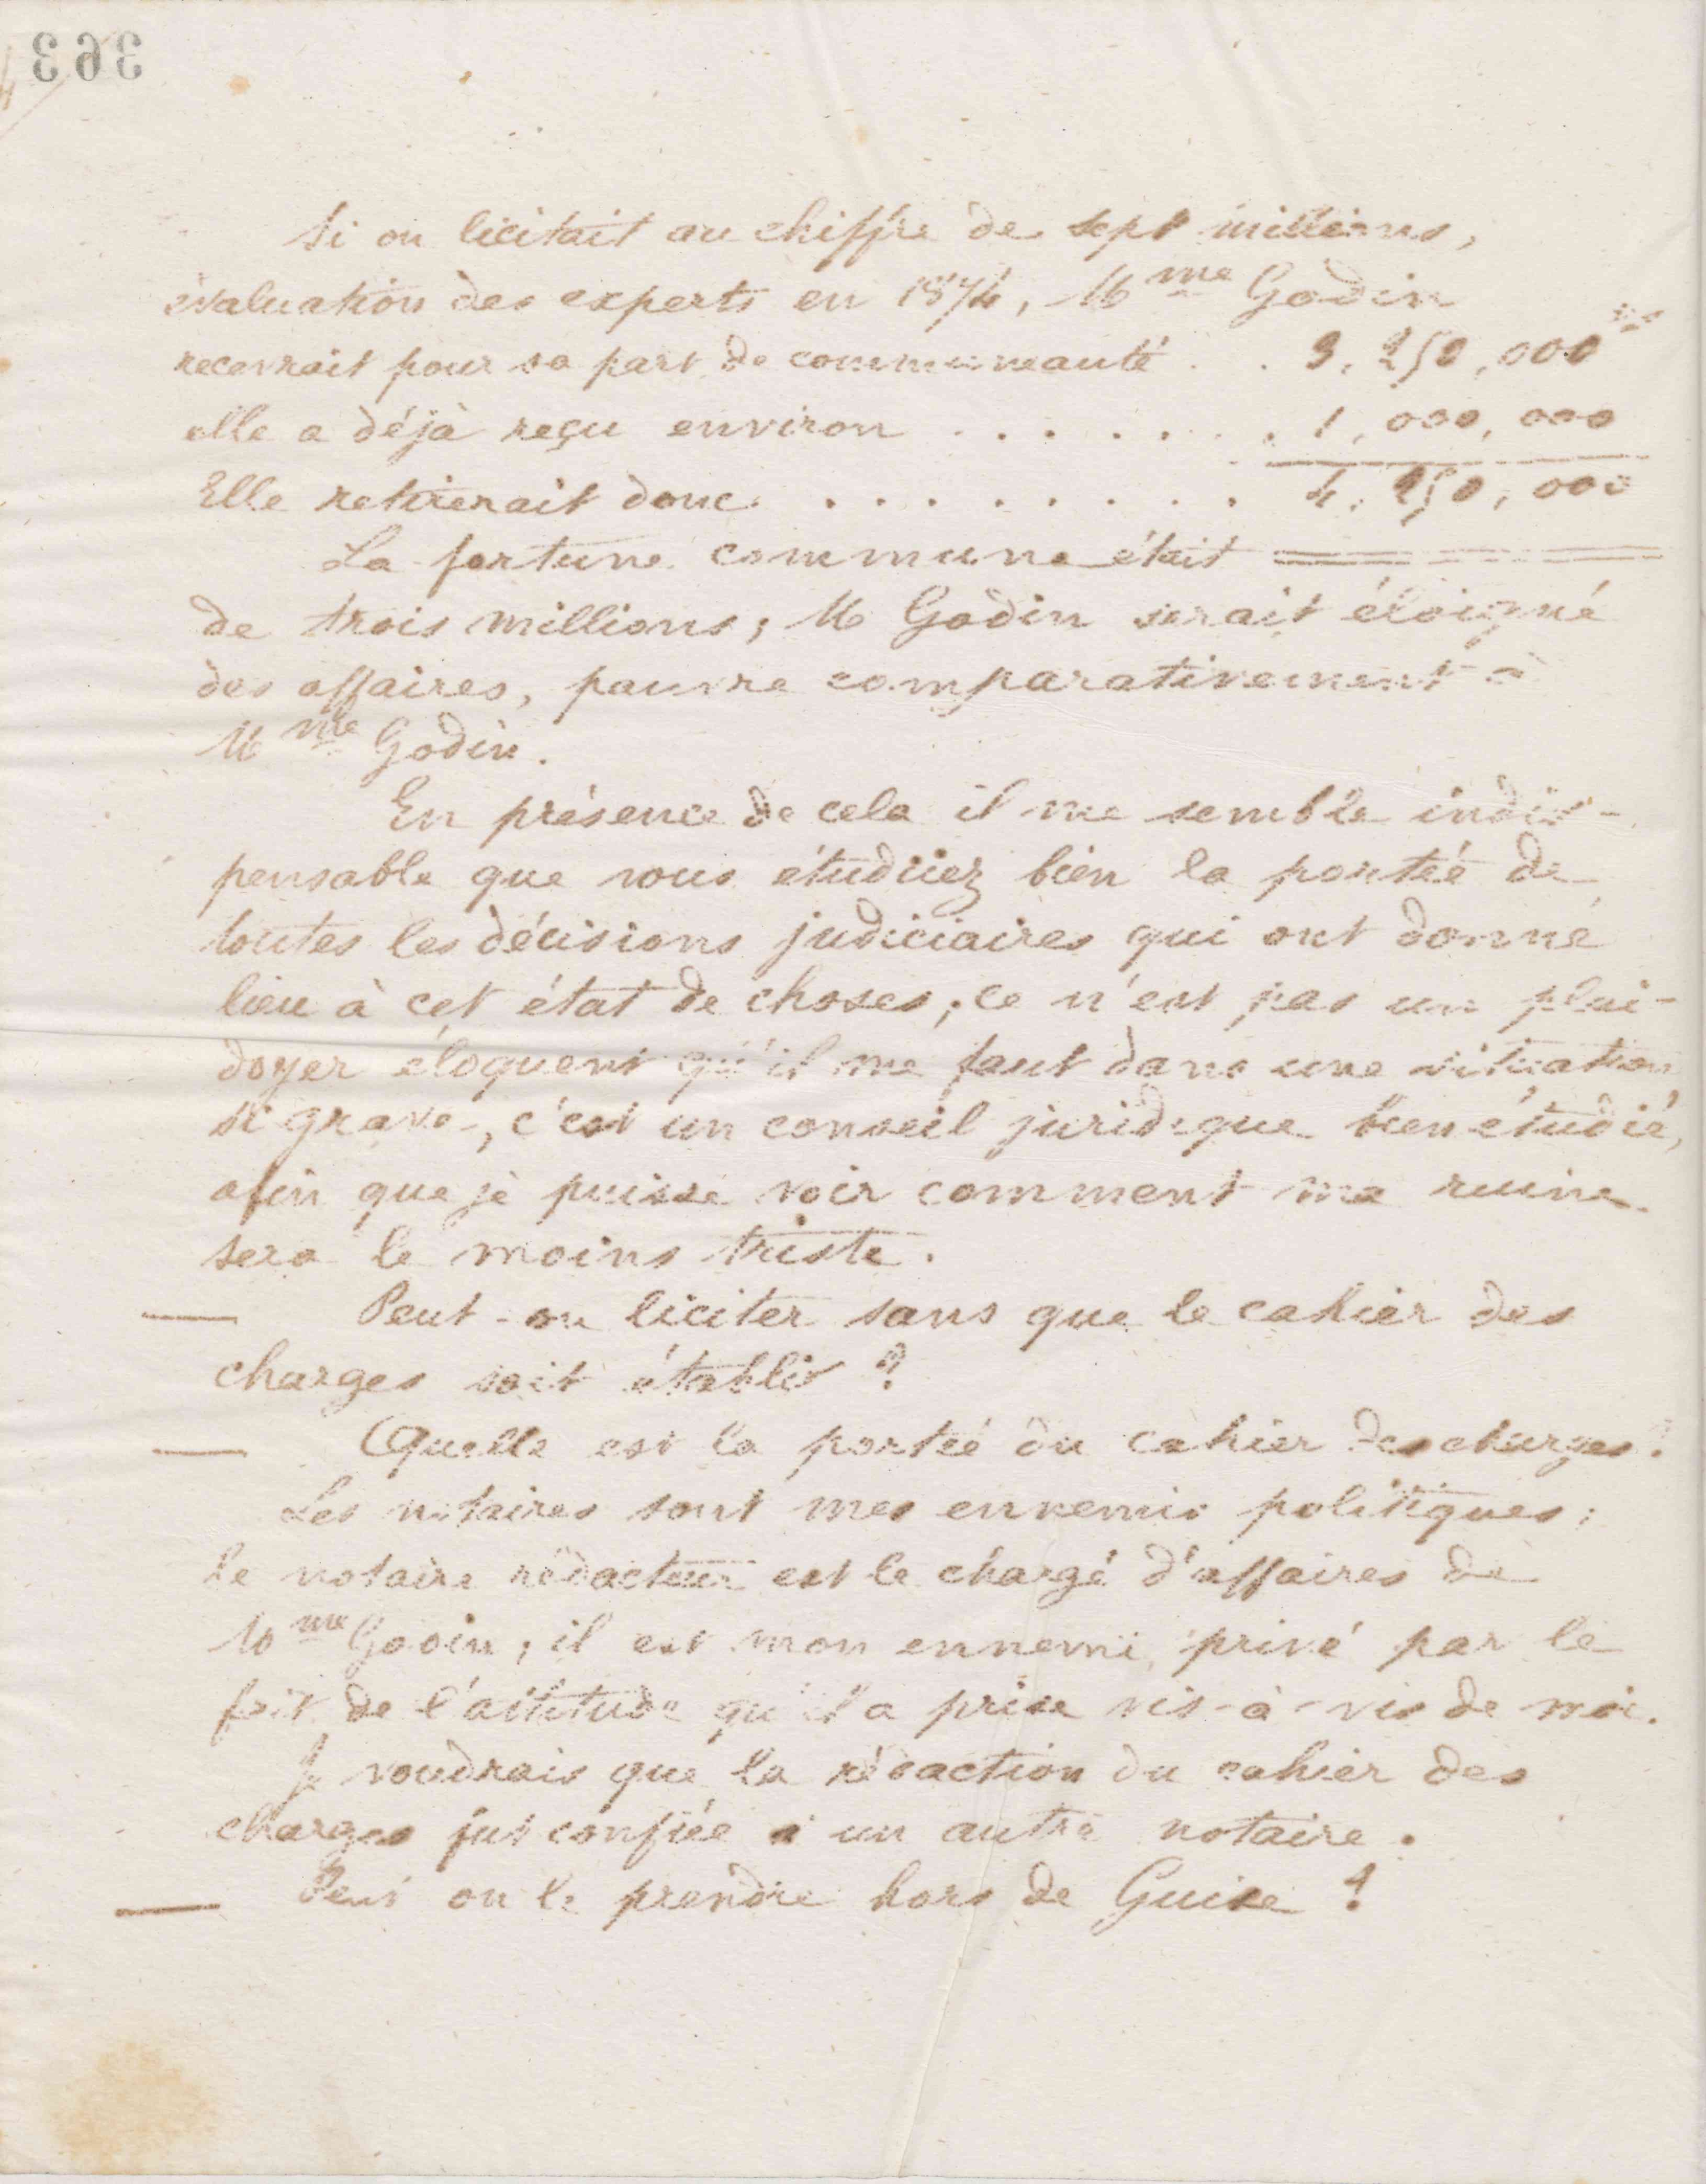 363
Si on licitait au chiffre de sept millions,
évaluation des experts en 1874, Mme Godin
recevrait pour sa part de communeauté . . 3,250,000
elle a déjà reçu environ . . . . . . . 1,000,000
Elle retirerait donc . . . . . . . . . 4,250,000
La fortune commune était
de trois millions; M Godin serait éloigné
des affaires, pauvre comparativement à
Mme Godin.
En présence de cela il me semble indis-
pensable que vous étudiiez bien la portée de
toutes les décisions judiciaires qui ont donné
lieu à cet état de choses; ce n'est pas un plai-
doyer éloquent qu'il me faut dans une situation
si grave, c'est un conseil juridique bien étudié,
afin que je puisse voir comment ma ruine
sera le moins triste.
— Peut-on liciter sans que le cahier des
charges soit établi ?
— Quelle est la portée du cahier des charges ?
Les notaires sont mes ennemis politiques;
le notaire rédacteur est le chargé d'affaires de
Mme Godin; il est mon ennemi privé par le
fait de l'attitude qu'il a prise vis-à-vis de moi.
Je voudrais que la rédaction du cahier des
charges fut confiée à un autre notaire.
— Peut on le prendre hors de Guise ?